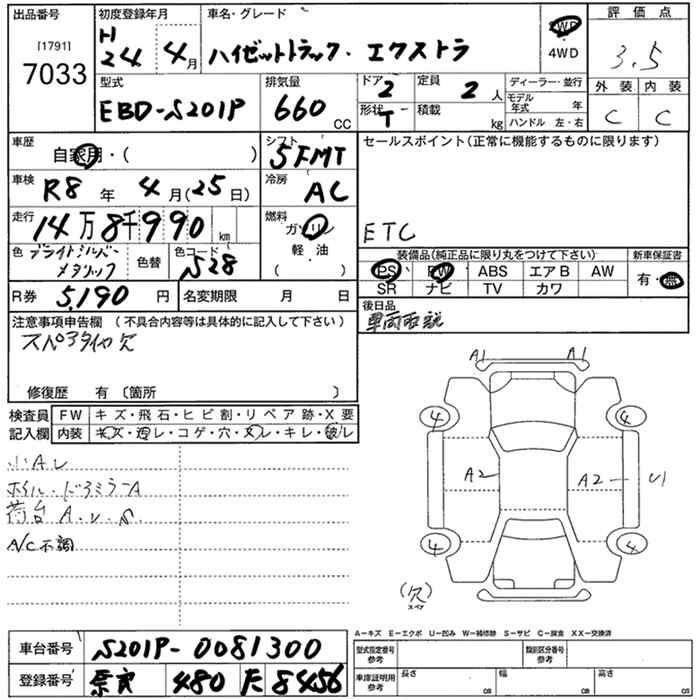 出品番号 初度登録年月 車名・グレード 評価点
[1791] 7033 H24年 4月 ハイゼットトラック・エクストラ 2WD 4WD 3.5
型式 排気量 ドア 2 定員 2人 ディーラー・並行 外装 内装
EBD-S201P 660 CC 形状 T 積載 kg モデル年式 年 ハンドル 左・右 C C
車歴 自家用・( ) シフト 5FMT セールスポイント(正常に機能するものに限ります)
車検 R8年 4月(25日) 冷房 AC
走行 14万8千990 km 燃料 ガソリン 軽・油 ( ) ETC
色 ブライトシルバーメタリック 色替 色コード S28 装備品(純正品に限り丸をつけて下さい) 新車保証書
PS PW ABS エアB AW 有・無
R券 5,190円 名変期限 月 日 SR ナビ TV カワ
注意事項申告欄 (不具合内容等は具体的に記入して下さい) 後日品
スペアタイヤ欠 車両取説
修復歴 有 〔箇所 〕
検査員 FW キズ・飛石・ヒビ割・リペア跡・X要
記入欄 内装 キズ・汚レ・コゲ・穴・ヌレ・キレ・破レ
A1 A1
4 4
小Aレ
A2 A2 U1
ホイル・ドアミラーA
荷台 A.U.S
A/C不調
4 4
(欠) スペア
A-キズ E-エクボ U-凹み W-補修跡 S-サビ C-腐食 XX-交換済
車台番号 S201P-0081300 型式指定番号 参考 類別区分番号 参考
登録番号 奈良 480 た 8456 車庫証明用 参考 長さ cm 幅 cm 高さ cm